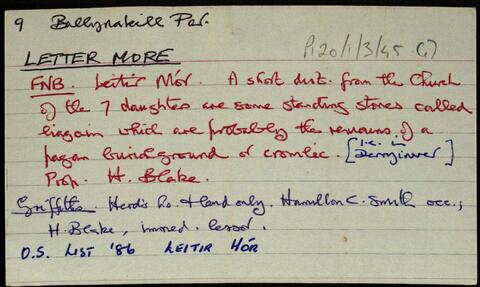 9 Ballynakill Par.
P120/1/3/45 (i)
LETTER MORE
FNB. Leitir Mór. A short dist. from the Church
of the 7 daughters are some standing stones called
liagain which are probably the remains of a
pagan burial ground or cromlec. [i.e. in Derryinver]
Prop. H. Blake.
Griffiths. Herd's ho. + land only. Hamilton C. Smith occ.,
H. Blake, immed. lessor.
O.S. LIST '86 LEITIR MÓR